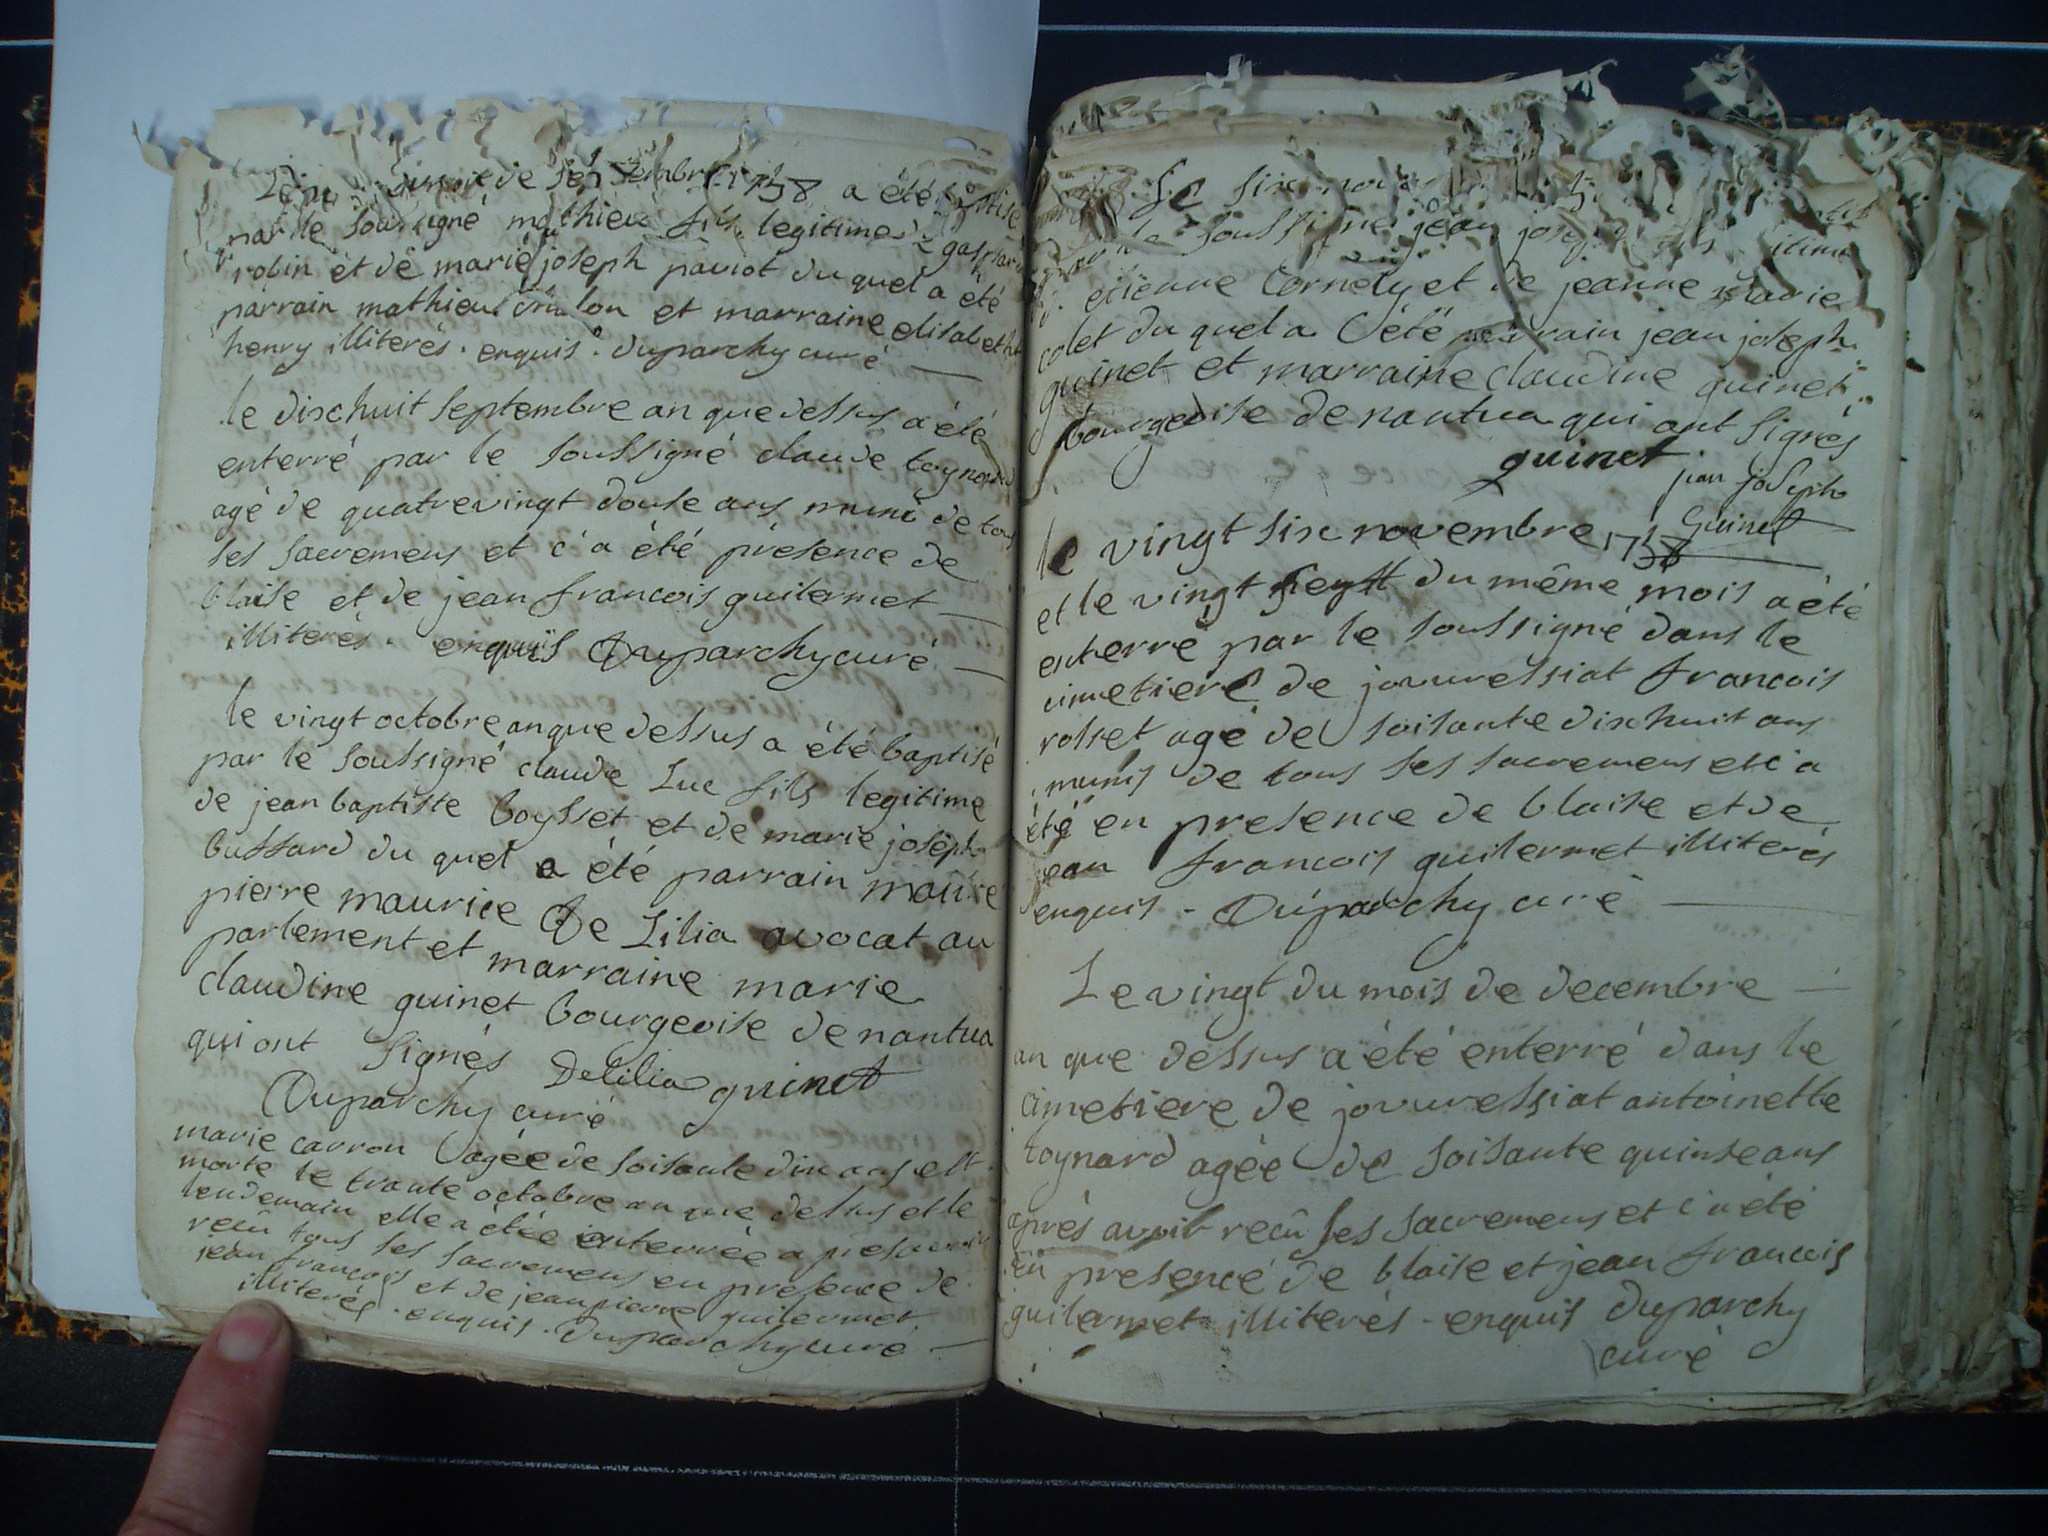 du mois de septembre 1758 a été baptisé
par le soussigné mathieu fils legitime de gaspard
robin et de marie joseph paviot du quel a été
parrain mathieu et marraine elisabeth
henry illiterés . enquis . Duparchy curé
le dixhuit septembre an que dessus a été
enterré par le soussigné claude toynard
agé de quatrevingt douse ans muni de tous
ses sacremens et c'a été présence de
blaise et de jean francois guilermet
illiterés . enquis Duparchy curé
le vingt octobre an que dessus a été baptisé
par le soussigné claude Luc fils legitime
de jean baptiste boysset et de marie joseph
bussard du quel a été parrain maitre
pierre maurice De Lilia avocat au
parlement et marraine marie
claudine guinet bourgeoise de nantua
qui ont signés Delilia guinet
Duparchy curé
marie carron agée de soisante dix ans est
morte le trante octobre an que dessus et le
lendemain elle a étée enterrée apres avoir
recû tous ses sacremens en presence de
jean francois et de jean pierre guilermet
illiterés . enquis . Duparchy curé
Le six
soussigné jean joseph
etienne Cornely et de jeanne marie
colet du quel a été parrain jean joseph
guinet et marraine claudine guinet
bourgeoise de nantua qui ont signés
guinet jean joseph
Guinet
le vingt six novembre 1758
et le vingt sept du même mois a été
enterré par le soussigné dans le
cimetiere de jovuressiat francois
rosset agé de soisante dixhuit ans
munis de tous ses sacremens et c'a
été en presence de blaise et de
jean francois guilermet illiterés
enquis - Duparchy curé
Le vingt du mois de decembre
an que dessus a été enterré dans le
cimetiere de jovuressiat antoinette
toynard agée de soisante quinse ans
aprés avoir recû ses sacremens et c'a été
en presence de blaise et jean francois
guilermet illiterés - enquis Duparchy
curé